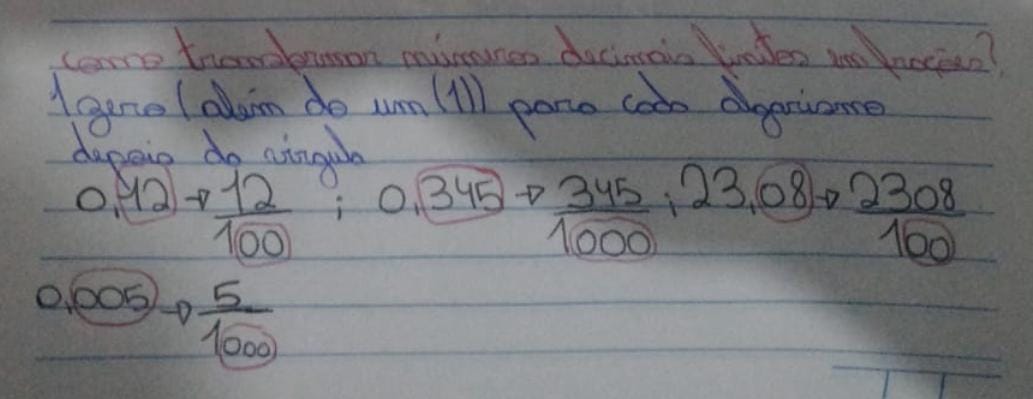 como transformar números decimais finitos em frações?
1 zero (além do um (1)) para cada algarismo
depois da vírgula
0,12 → 12/100 ; 0,345 → 345/1000 ; 23,08 → 2308/100
0,005 → 5/1000